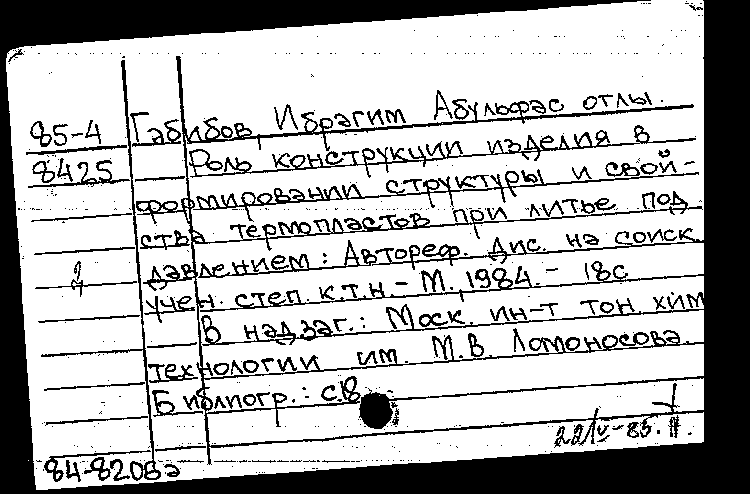 85-4 Габибов, Ибрагим Абульфас отлы.
8425 Роль конструкции изделия в
формировании структуры и свой-
ства термопластов при литье под
давлением: Автореф. дис. на соиск.
учен. степ. к.т.н. - М., 1984. - 18с
В надзаг.: Моск. ин-т тон. хим
технологии им. М.В. Ломоносова.
Библиогр.: с.18
22/V-85.
84-82063